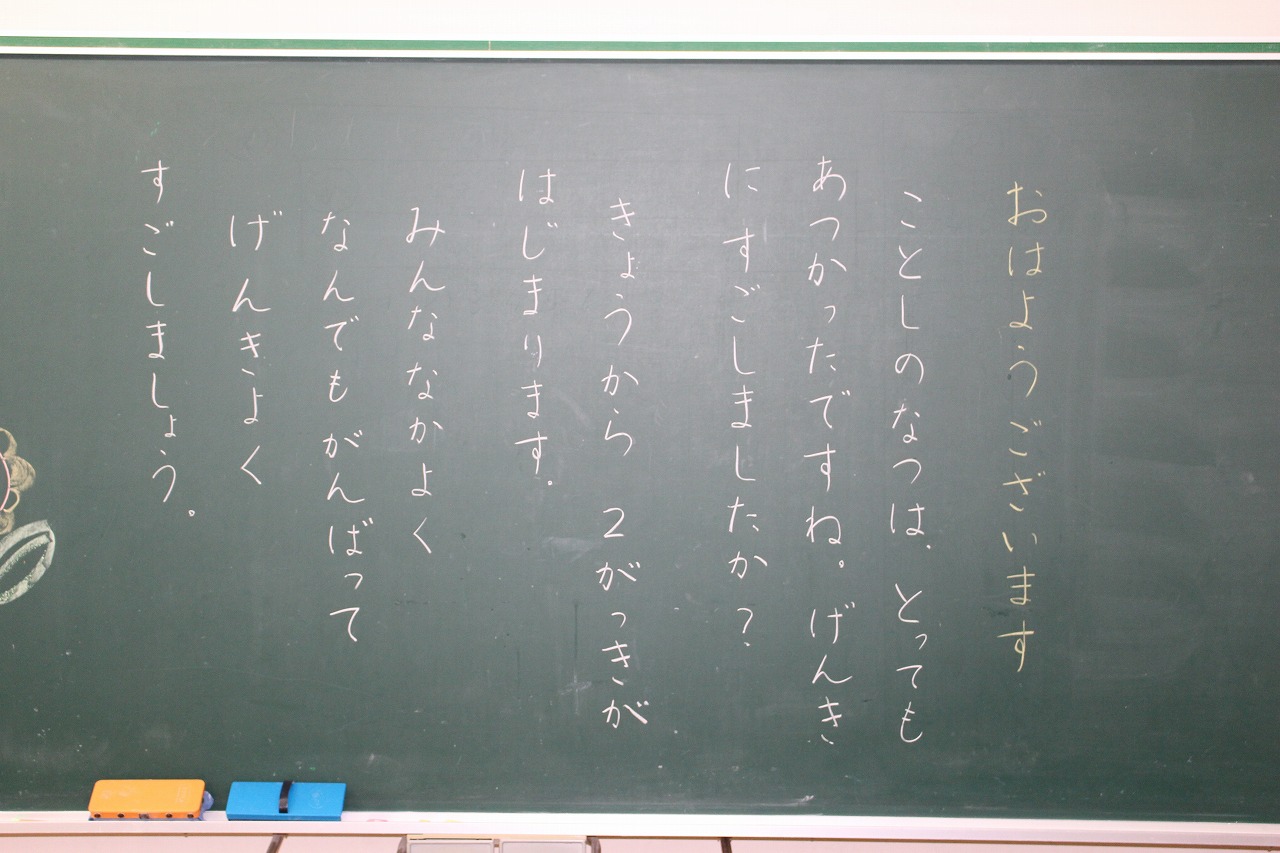 おはようございます
ことしのなつは、とっても
あつかったですね。げんき
に すごしましたか？
きょうから ２がっきが
はじまります。
みんななかよく
なんでもがんばって
げんきよく
すごしましょう。